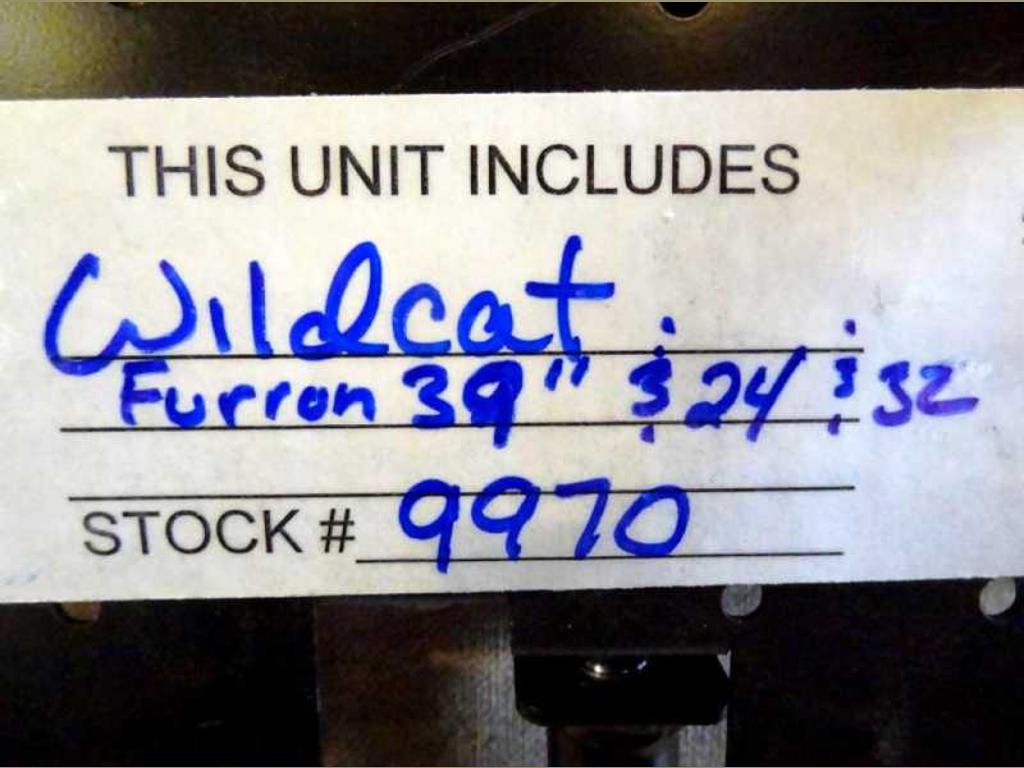 THIS UNIT INCLUDES
Wildcat
Furron 39" & 24 & 32
STOCK # 9970